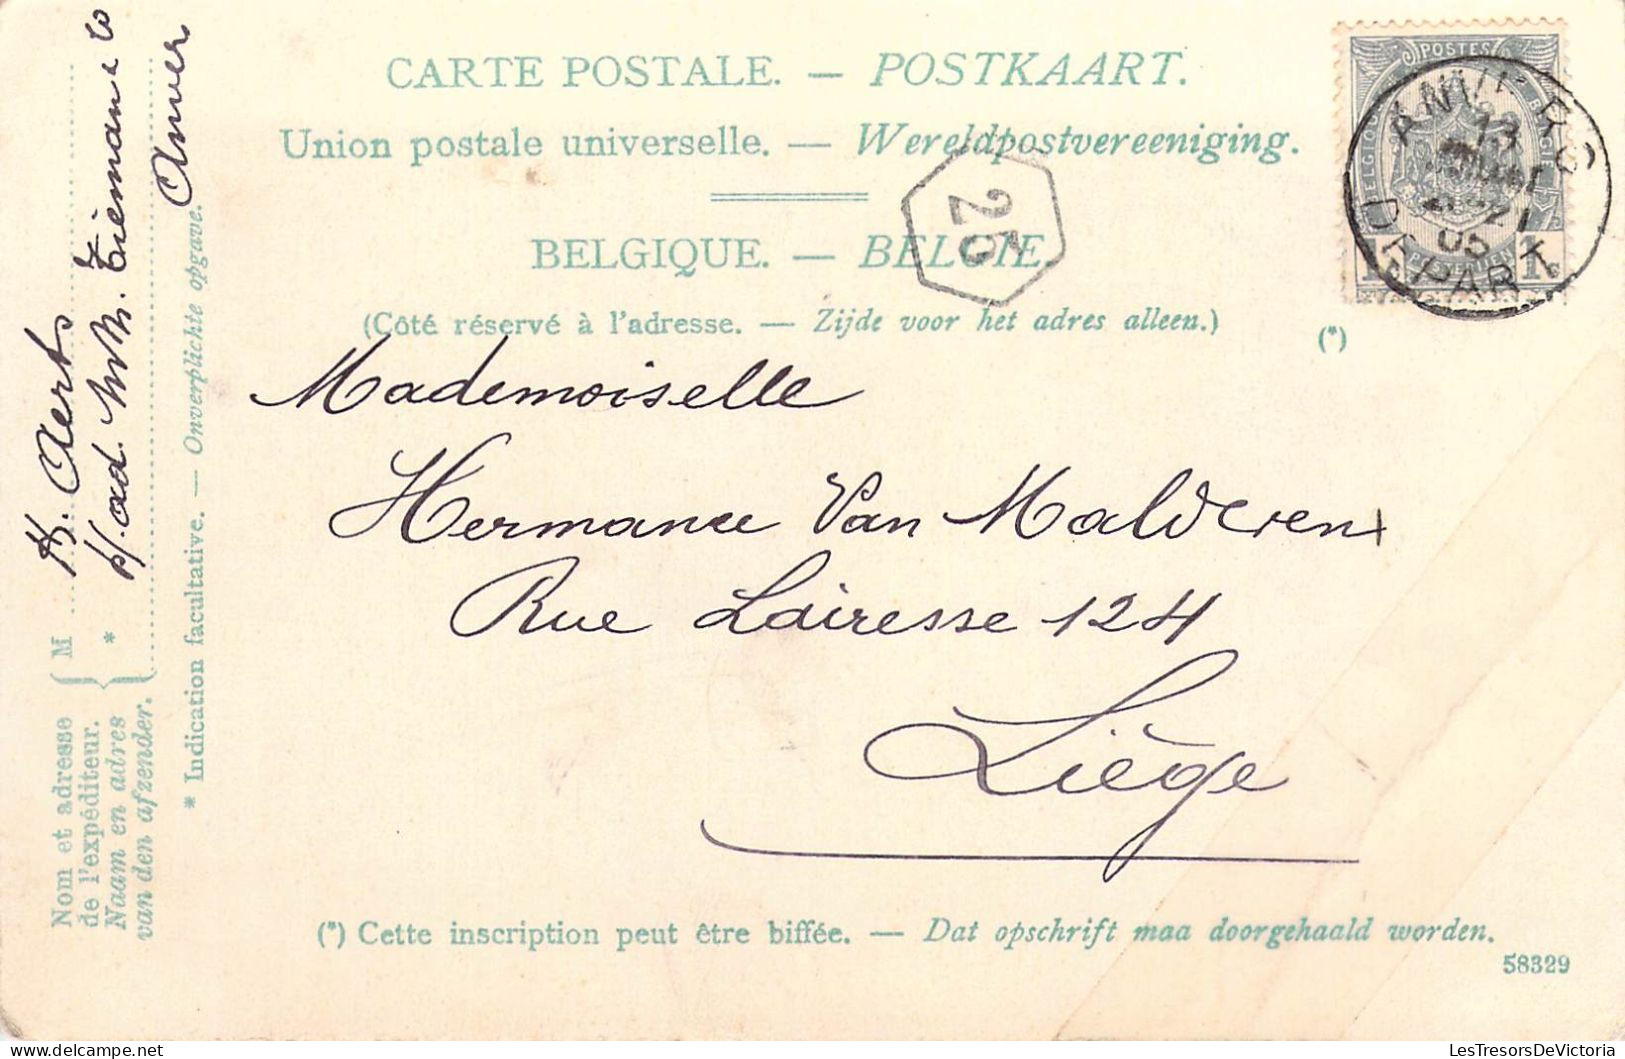 CARTE POSTALE. — POSTKAART.
Union postale universelle. — Wereldpostvereeniging.
BELGIQUE. — BELGIE.
(Côté réservé à l'adresse. — Zijde voor het adres alleen.)
(*)
25
POSTES
ANVERS
13
05
DEPART
1
Mademoiselle
Hermance Van Malderen
Rue Lairesse 124
Liège
(*) Cette inscription peut être biffée. — Dat opschrift maa doorgehaald worden.
58329
Nom et adresse
de l'expéditeur.
Naam en adres
van den afzender.
M
*
Aerts
* Indication facultative. — Onverplichte opgave.
LesTresorsDeVictoria